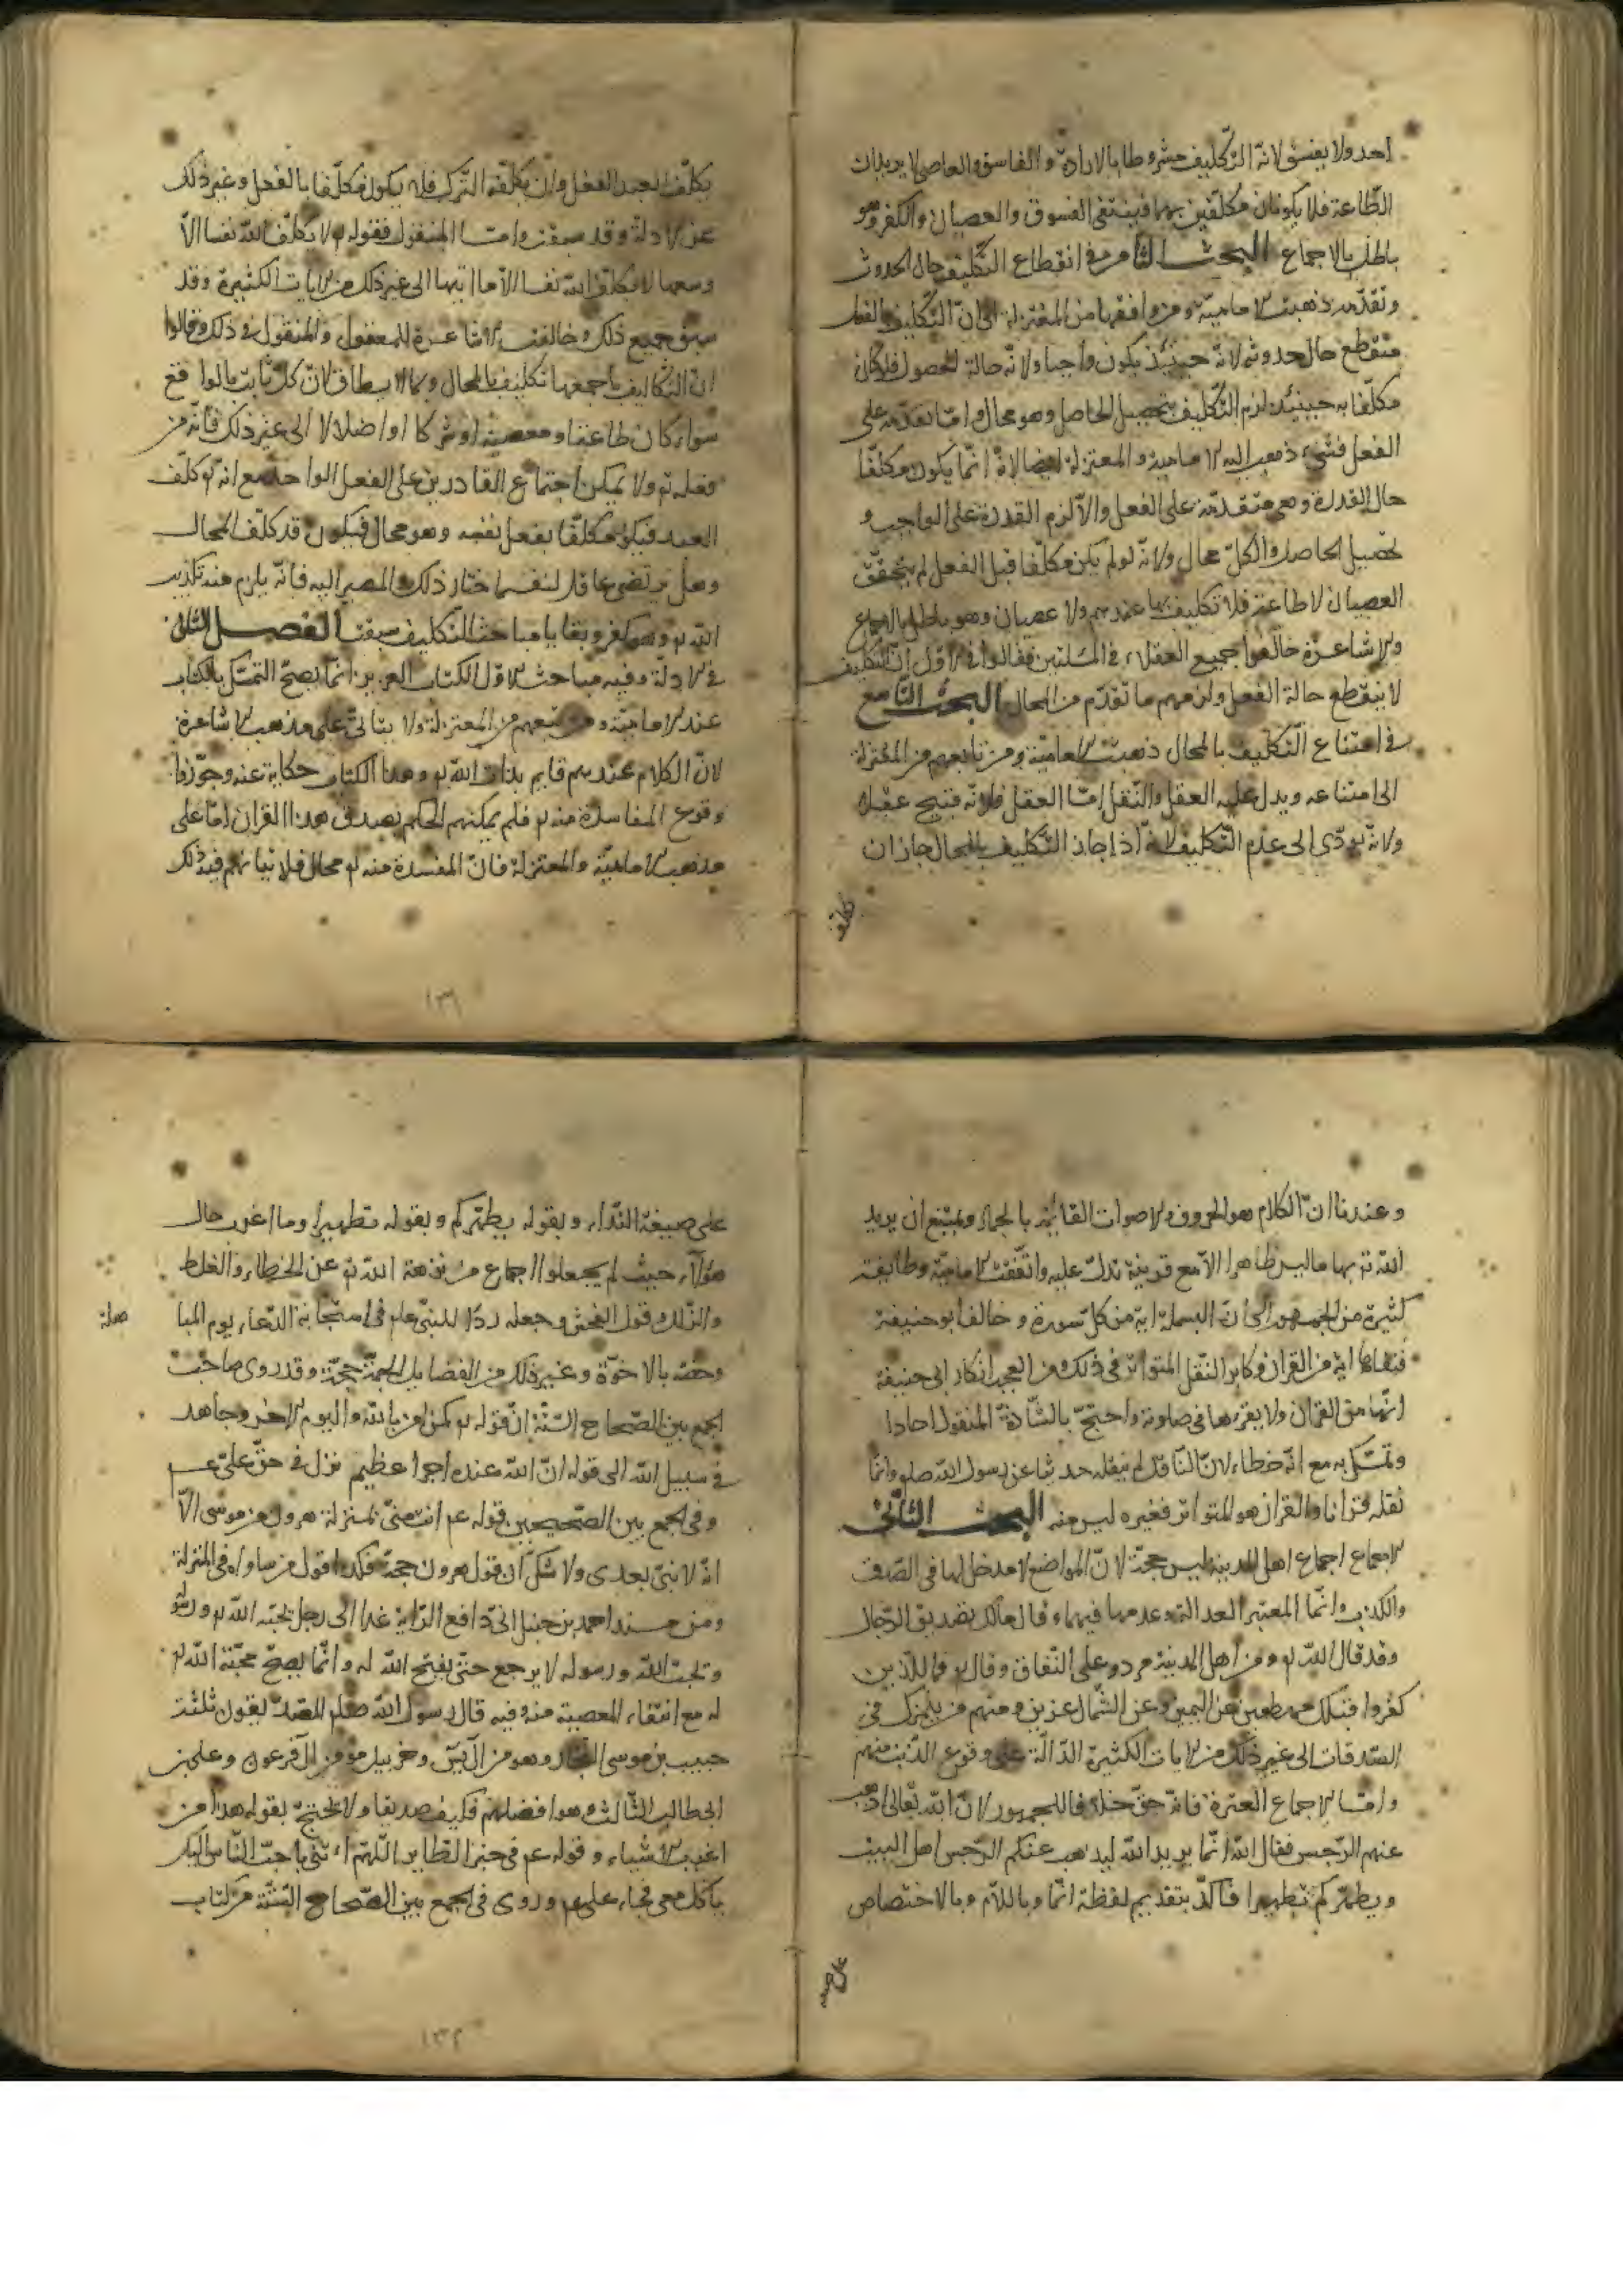 احد ولا يفسق لانّ التكليف مشروط بالارادة والفاسق والعاصى لا يريدان
الطّاعة فلا يكونان مكلّفين بها فينتفى الفسوق والعصيان والكفر وهو
باطل بالاجماع البحث الثامن في انقطاع التكليف حال الحدوث
وتقدّمه ذهبت الاماميّة ومن وافقها من المعتزلة الى انّ التكليف بالفعل
منقطع حال حدوثه لانّه حينئذ يكون واجبا ولانّه حالة الحصول فلو كان
مكلّفا به حينئذ لزم التكليف بتحصيل الحاصل وهو محال وامّا تقدّمه على
الفعل فشىء ذهب اليه الامامية والمعتزلة ايضا لانّه انّما يكون مكلّفا
حال القدرة وهى متقدّمة على الفعل والّا لزم القدرة على الواجب و
تحصيل الحاصل والكلّ محال ولانّه لو لم يكن مكلّفا قبل الفعل لم يتحقّق
العصيان لا طاعة فلا تكليف بها عندهم ولا عصيان وهو باطل بالاجماع
والاشاعرة خالفوا جميع العقلاء في المسئلتين فقالوا في الاوّل انّ التكليف
لا ينقطع حالة الفعل ولزمهم ما تقدّم من المحال البحث التاسع
في امتناع التّكليف بالمحال ذهبت الاماميّة ومن تابعهم من المعتزلة
الى امتناعه ويدل عليه العقل والنّقل امّا العقل فلانّه قبيح عقلا
ولانّه يؤدّى الى عدم التّكليف لانّه اذا جاز التكليف بالمحال جاز ان
يكلّف
يكلّف العبد الفعل وان يكلّفه التّرك فلا يكون مكلّفا بالفعل وغير ذلك
عن الادلة وقد سبقت وامّا المنقول فقوله تع لا يكلّف اللّه نفسا الّا
وسعها لا يكلّف اللّه نفسا الّا ما اتيها الى غير ذلك من الايات الكثيرة وقد
سبق جميع ذلك وخالفت الاشاعرة المعقول والمنقول في ذلك وقالوا
انّ التكاليف باجمعها تكليف بالمحال وبما لا يطاق لانّ كلّ
سواء كان طاعة او معصية او شركا او اضلالا الى غير ذلك فانّه من
فعله تع ولا يمكن اجتماع القادرين على الفعل الواحد مع انّه تع كلّف
العبد فيكون مكلّفا بفعل نفسه وهو محال فيكون قد كلّف المحال
وهل يرتضى عاقل لنفسه اختيار ذلك والمصير اليه فانّه يلزم منه تكذيب
اللّه تع وهو كفر وبقايا مباحث التكليف سبقت الفصل الثانى
في الادلة وفيه مباحث الاوّل الكتاب العزيز انّما يصحّ التمسّك بالكتاب
عند الاماميّة ومن تبعهم من المعتزلة ولا يتأتّى على مذهب الاشاعرة
لانّ الكلام عندهم قايم بذات اللّه تع وهذا الكتاب حكاية عنه وجوّزوا
وقوع المفاسدة منه تع فلم يمكنهم الحكم بصدق هذا القران امّا على
مذهب الاماميّة والمعتزلة فانّ المفسدة منه تع محال فلا يتأتى فيهم ذلك
١٣١
وعندنا انّ الكلام هو الحروف والاصوات القائمة بالاجسام ويمتنع ان يريد
اللّه تع بها ما ليس ظاهرا الّا مع قرينة تدلّ عليه واتّفقت الاماميّة وطائفة
كثيرة من الجمهور الى انّ البسملة اية من كلّ سورة وخالف ابو حنيفة
فنفاها اية من القران وكابر النّقل المتواتر في ذلك ومن العجب انكار ابى حنيفة
انّها من القران ولا يقرئها في صلوته واحتجّ بالشّاذّة المنقول احادا
وتمسّك به مع انّه خطاء لانّ النّاقل لم ينقله حديثا عن رسول اللّه صلع وانّما
نقله قرانا والقران هو المتواتر فغيره ليس منه البحث الثانى
الاجماع اجماع اهل المدينة ليس حجّة لانّ المواضع لا مدخل لها في الصّدق
والكذب وانّما المعتبر العدالة وعدمها فيهما وقال مالك بتصديق الرّجال
وقد قال اللّه تع ومن اهل المدينة مردوا على النّفاق وقال تع فما للّذين
كفروا قبلك مهطعين عن اليمين وعن الشّمال عزين ومنهم من يلمزك في
الصّدقات الى غير ذلك من الايات الكثيرة الدّالّة على وقوع الذّنب منهم
وامّا اجماع العترة فانّه حقّ خلافا للجمهور لانّ اللّه تعالى اذهب
عنهم الرّجس فقال اللّه انّما يريد اللّه ليذهب عنكم الرّجس اهل البيت
ويطهّركم تطهيرا فأكّد بتقديم لفظة انّما وباللّام وبالاختصاص
على صيغة
على صيغة النّداء وبقوله يطهّركم وبقوله تطهيرا وما اغرب حال
هؤلاء حيث لم يجعلوا اجماع من نزهه اللّه تع عن الخطاء والغلط
والزّلل وقول الفحش وجعله ردًا للنبىّ عم في استجابة الدّعاء يوم المبا
هلة
وخصّه بالاخوّة وغير ذلك من الفضايل الجمّة حجّة وقد روى صاحب
الجمع بين الصّحاح السّتّة انّ قوله تع كمن امن باللّه واليوم الاخر وجاهد
في سبيل اللّه الى قوله انّ اللّه عنده اجر عظيم نزل في حقّ علىّ عم
وفي الجمع بين الصّحيحين قوله عم انت منّى بمنزلة هرون من موسى الّا
انّه لا نبىّ بعدى ولا شكّ ان قول هرون حجّة فكذا قول من ساواه في المنزلة
ومن مسند احمد بن حنبل انّى دافع الرّاية غدا الى رجل يحبّه اللّه تع ورسوله
ويحبّ اللّه ورسوله لا يرجع حتّى يفتح اللّه له وانّما يصحّ محبّة اللّه تع
له مع انتفاء المعصية منه وفيه قال رسول اللّه صلع الصدّيقون ثلثة
حبيب بن موسى النجّار وهو مؤمن ال يس وخزبيل مؤمن ال فرعون وعلى بن
ابى طالب الثّالث وهو افضلهم فكيف صديقا ولا يحتجّ بقوله هذا من
اغرب الاشياء وقوله عم في خبر الطّاير اللّهمّ ائتنى باحبّ النّاس اليك
يأكل معى فجاء علىّ عم وروى في الجمع بين الصّحاح السّتّة من كتاب
١٣٢